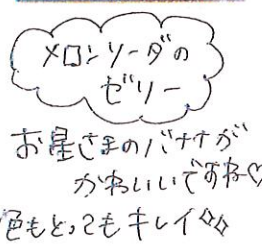 メロンソーダの
ゼリー
お星さまのバナナが
かわいいですね♡
色もとってもキレイ